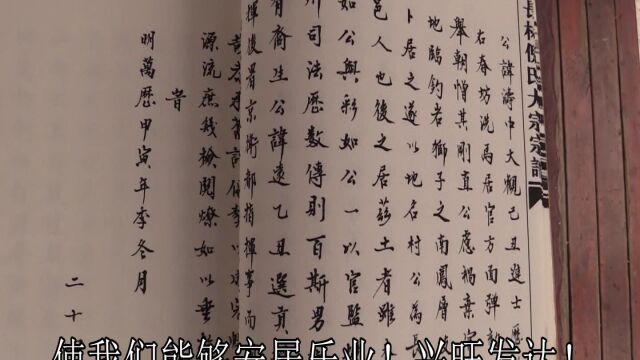 長林倪氏大宗宗譜
公諱濤中大觀己丑進士歷
右春坊洗馬居官方面彈劾
舉朝憎其剛直公慮禍棄
地臨釣岩獅子之南鳳層
卜居之遂以地名村公為長
邑人也後之居茲土者雖
如公與彩如公一以官監
川司法歷數傳則百斯男
有裔生公諱遠乙丑選貢
揮後署京衛都指揮事而
源流庶幾檢閱燎如以垂
昔
明萬歷甲寅年季冬月
二十
使我们能够安居乐业！兴旺发达！